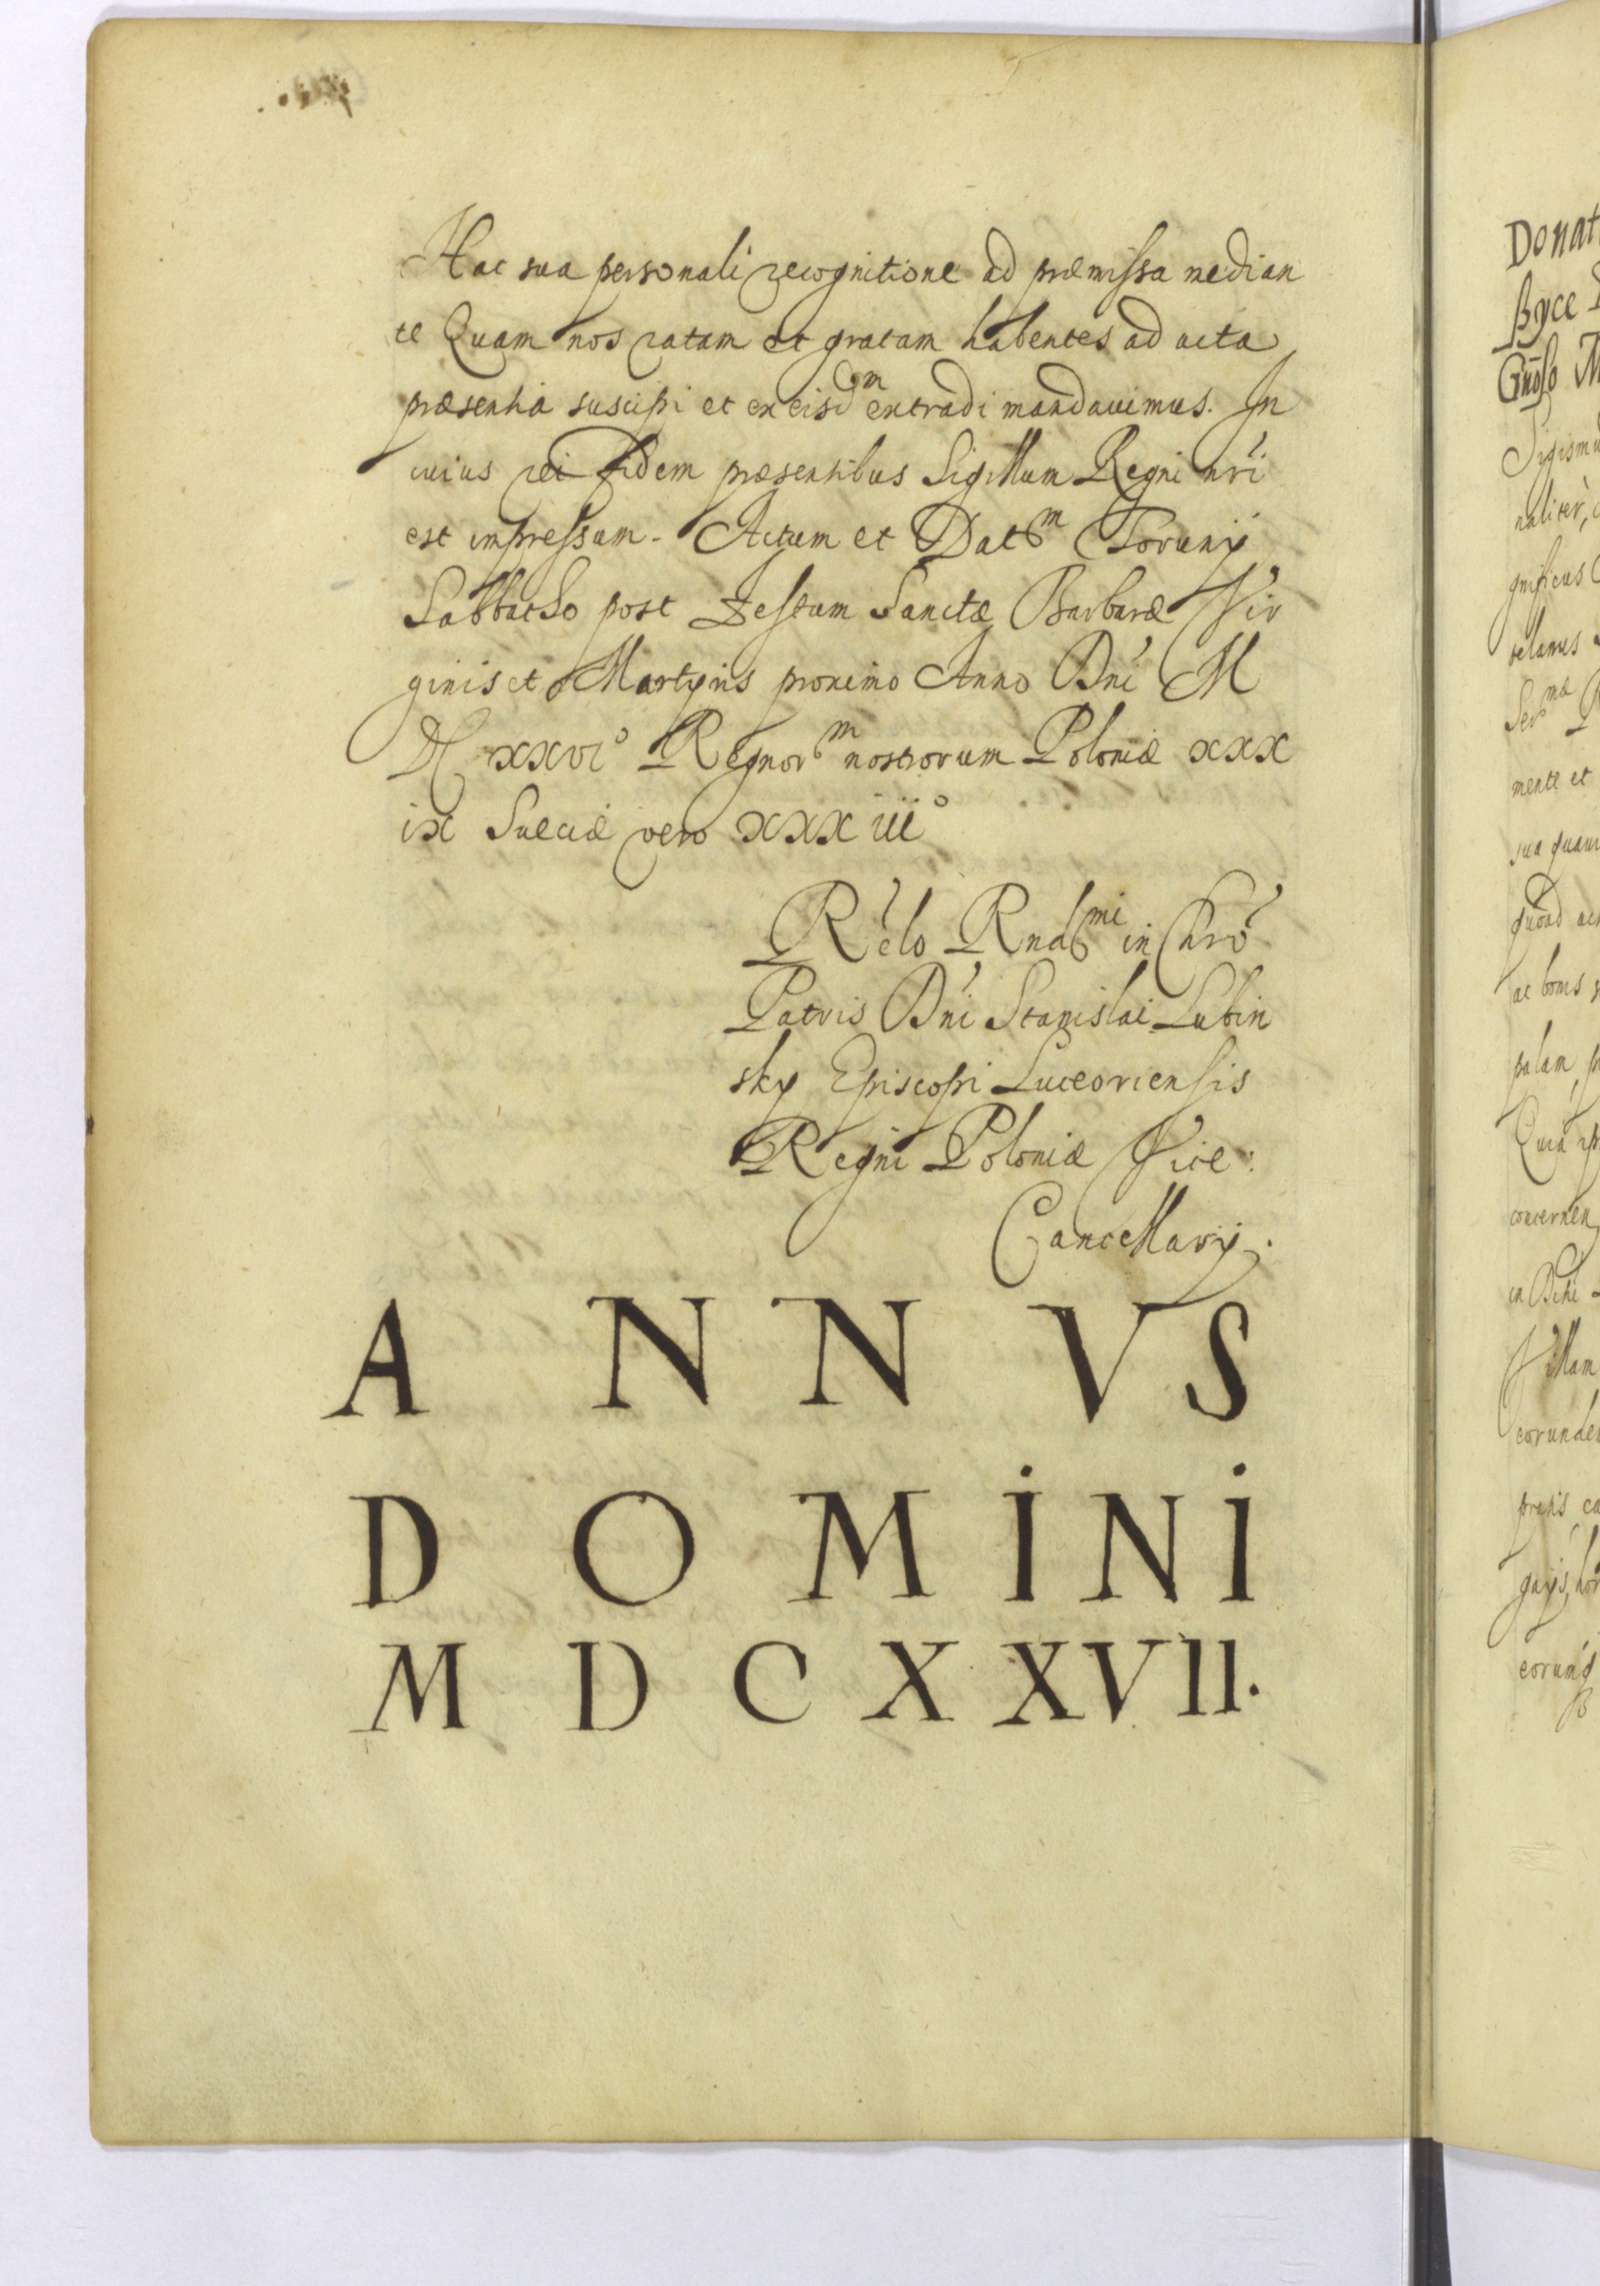 Hac sua personali recognitione ad præmissa median
te Quam nos ratam et gratam habentes ad acta
præsentia suscipi et ex eisdm extradi mandauimus. In
cuius rei fidem præsentibus Sigillum Regni nri
est impressum. Actum et Datm Torunij
Sabbatho post Festum Sanctæ Barbaræ Vir
ginis et Martyris proximo Anno Dni M
DC XXVIº Regnorm nostrorum Poloniæ XXX
ix Sueciæ vero XXXiiiº
Rélo Rndmi in Chro
Patris Dni Stanislai Lubin
sky Episcopi Luceoriensis
Regni Poloniæ Vice:
Cancellarij.
ANNVS
DOMINI
MDCXXVII.
Donat
Byce
Gnoso M
Sigismu
naliter,
gnificus
mente et
sua quam
quoad
ac bonis
palam,
Quia
concernen
in
Villam
corunde